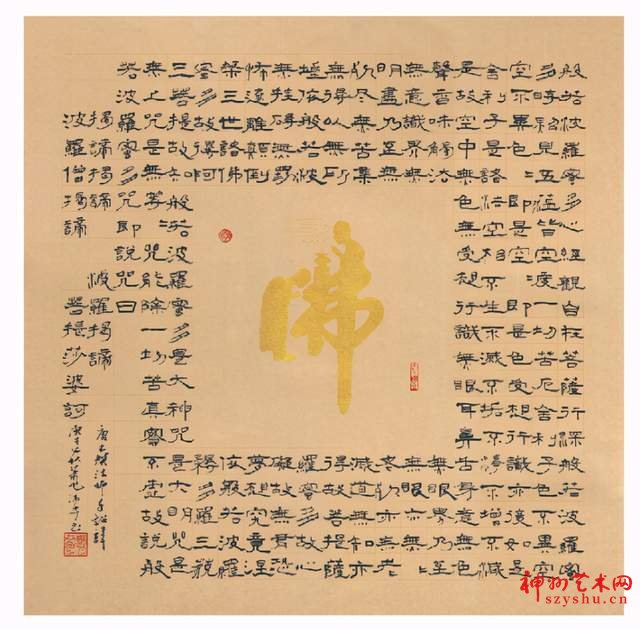 般若波羅蜜多心經觀自在菩薩行深般若波羅蜜
多時照見五蘊皆空度一切苦厄舍利子色不異
空空不異色色即是空空即是色受想行識亦復如是
舍利子是諸法空相不生不滅不垢不淨不增不減
是故空中無色無受想行識無眼耳鼻舌身意無色
聲香味觸法無眼界乃至
無意識界無無明亦無
無明盡乃至無老死亦無老
死盡無苦集滅道無智亦
無得以無所得故菩提薩
埵依般若波羅蜜多故心
無罣礙無罣礙故無有恐
怖遠離顛倒夢想究竟涅
槃三世諸佛依般若波羅
蜜多故得阿耨多羅三藐
三菩提故知般若波羅蜜多是大神咒是大明咒是
無上咒是無等等咒能除一切苦真實不虛故說般
若波羅蜜多咒即說咒曰
揭諦揭諦 波羅揭諦
波羅僧揭諦 菩提莎婆訶
佛
唐玄奘法師奉詔譯
神州艺术网
szyshu.cn